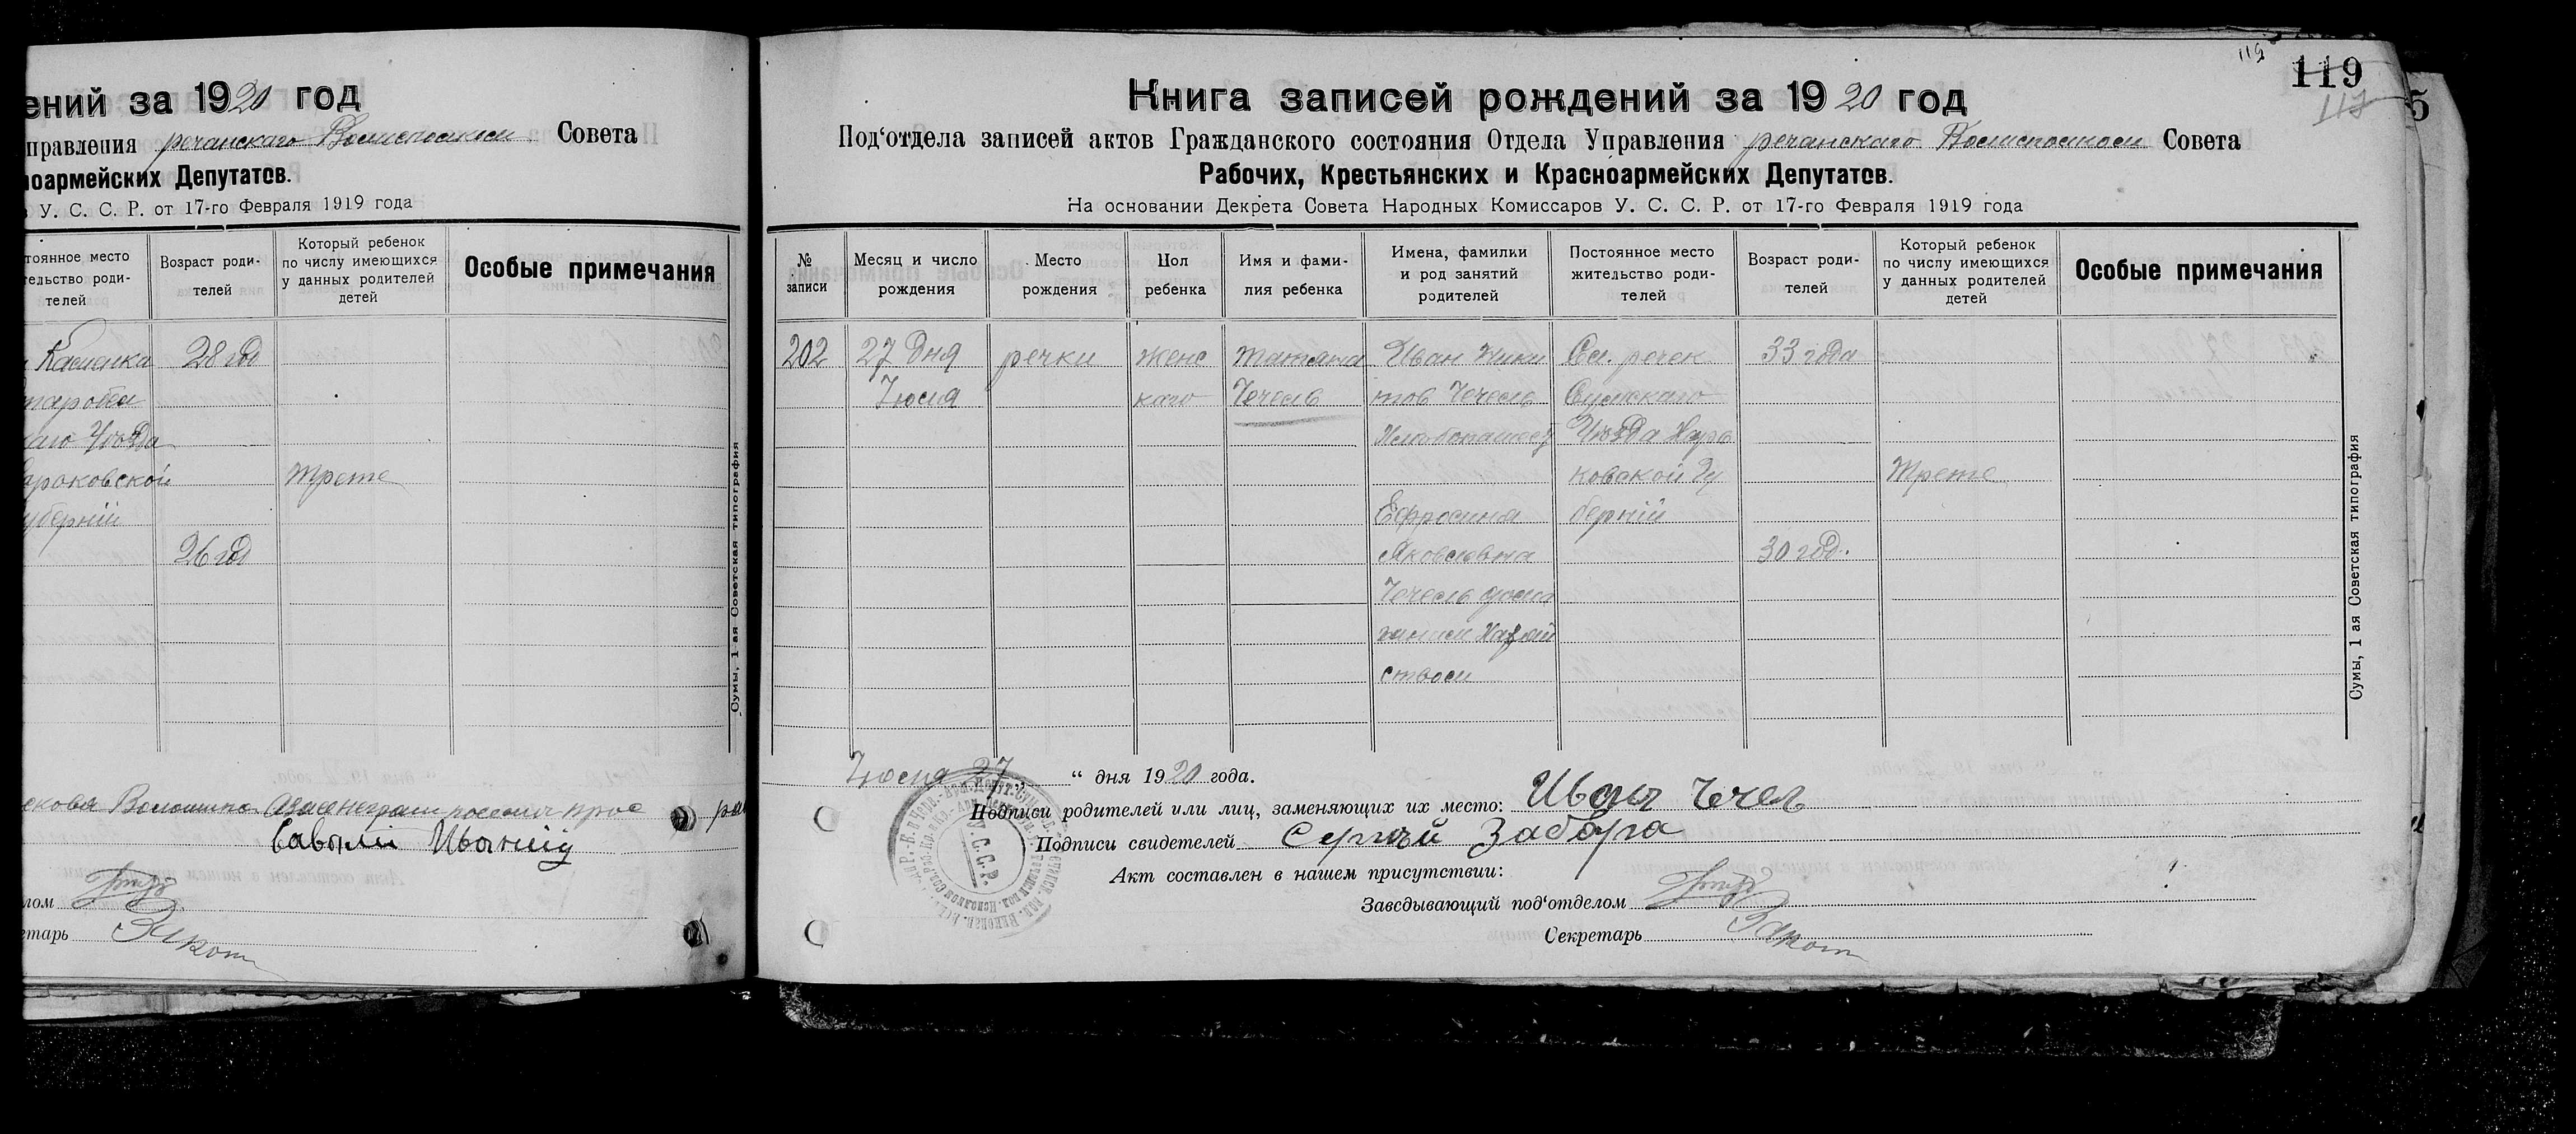 ений за 1920 год
правления речанскаго Волисполком Совета
ноармейских Депутатов.
в У. С. С. Р. от 17-го Февраля 1919 года
тоянное место
тельство роди-
телей
Возраст роди-
телей
Который ребенок
по числу имеющихся
у данных родителей
детей
Особые примечания
Каменка
28 год
каго Уюзда
арьковской
Трете
уберніи
26 год
Сумы, 1 ая Советская типография
лом
етарь
119
119
117
5
Книга записей рождений за 1920 год
Под‘отдела записей актов Гражданского состояния Отдела Управления речанскаго Волисполком Совета
Рабочих, Крестьянских и Красноармейских Депутатов.
На основании Декрета Совета Народных Комиссаров У. С. С. Р. от 17-го Февраля 1919 года
№
записи
Месяц и число
рождения
Место
рождения
Пол
ребенка
Имя и фами-
лия ребенка
Имена, фамилки
и род занятий
родителей
Постоянное место
жительство роди-
телей
Возраст роди-
телей
Который ребенок
по числу имеющихся
у данных родителей
детей
Особые примечания
202
27 Дня
Июля
речки
женс
каго
Татяна
Чечель
Иван Ники
тов Чечель
Ефросиня
Яковлевна
Чечель дома
ством
Сел. речек
Сумскаго
Уюзда Харь
ковской Гу
берніи
33 года
30 год.
Трете
Сумы, 1 ая Советская типография
Июля 27 “ дня 1920 года.
Подписи родителей или лиц, заменяющих их место: Иван Чечел
Подписи свидетелей Сергъй Забара
У.С.С.Р.
Акт составлен в нашем присутствии:
Заведывающий под‘отделом
Секретарь